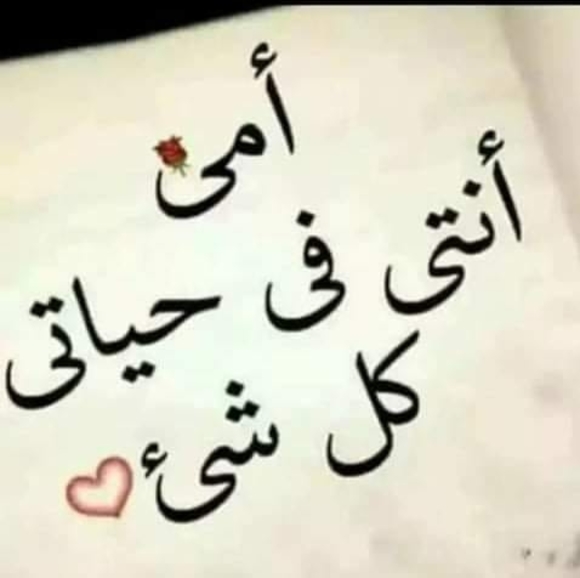 أمى
أنتى فى حياتى
كل شئ